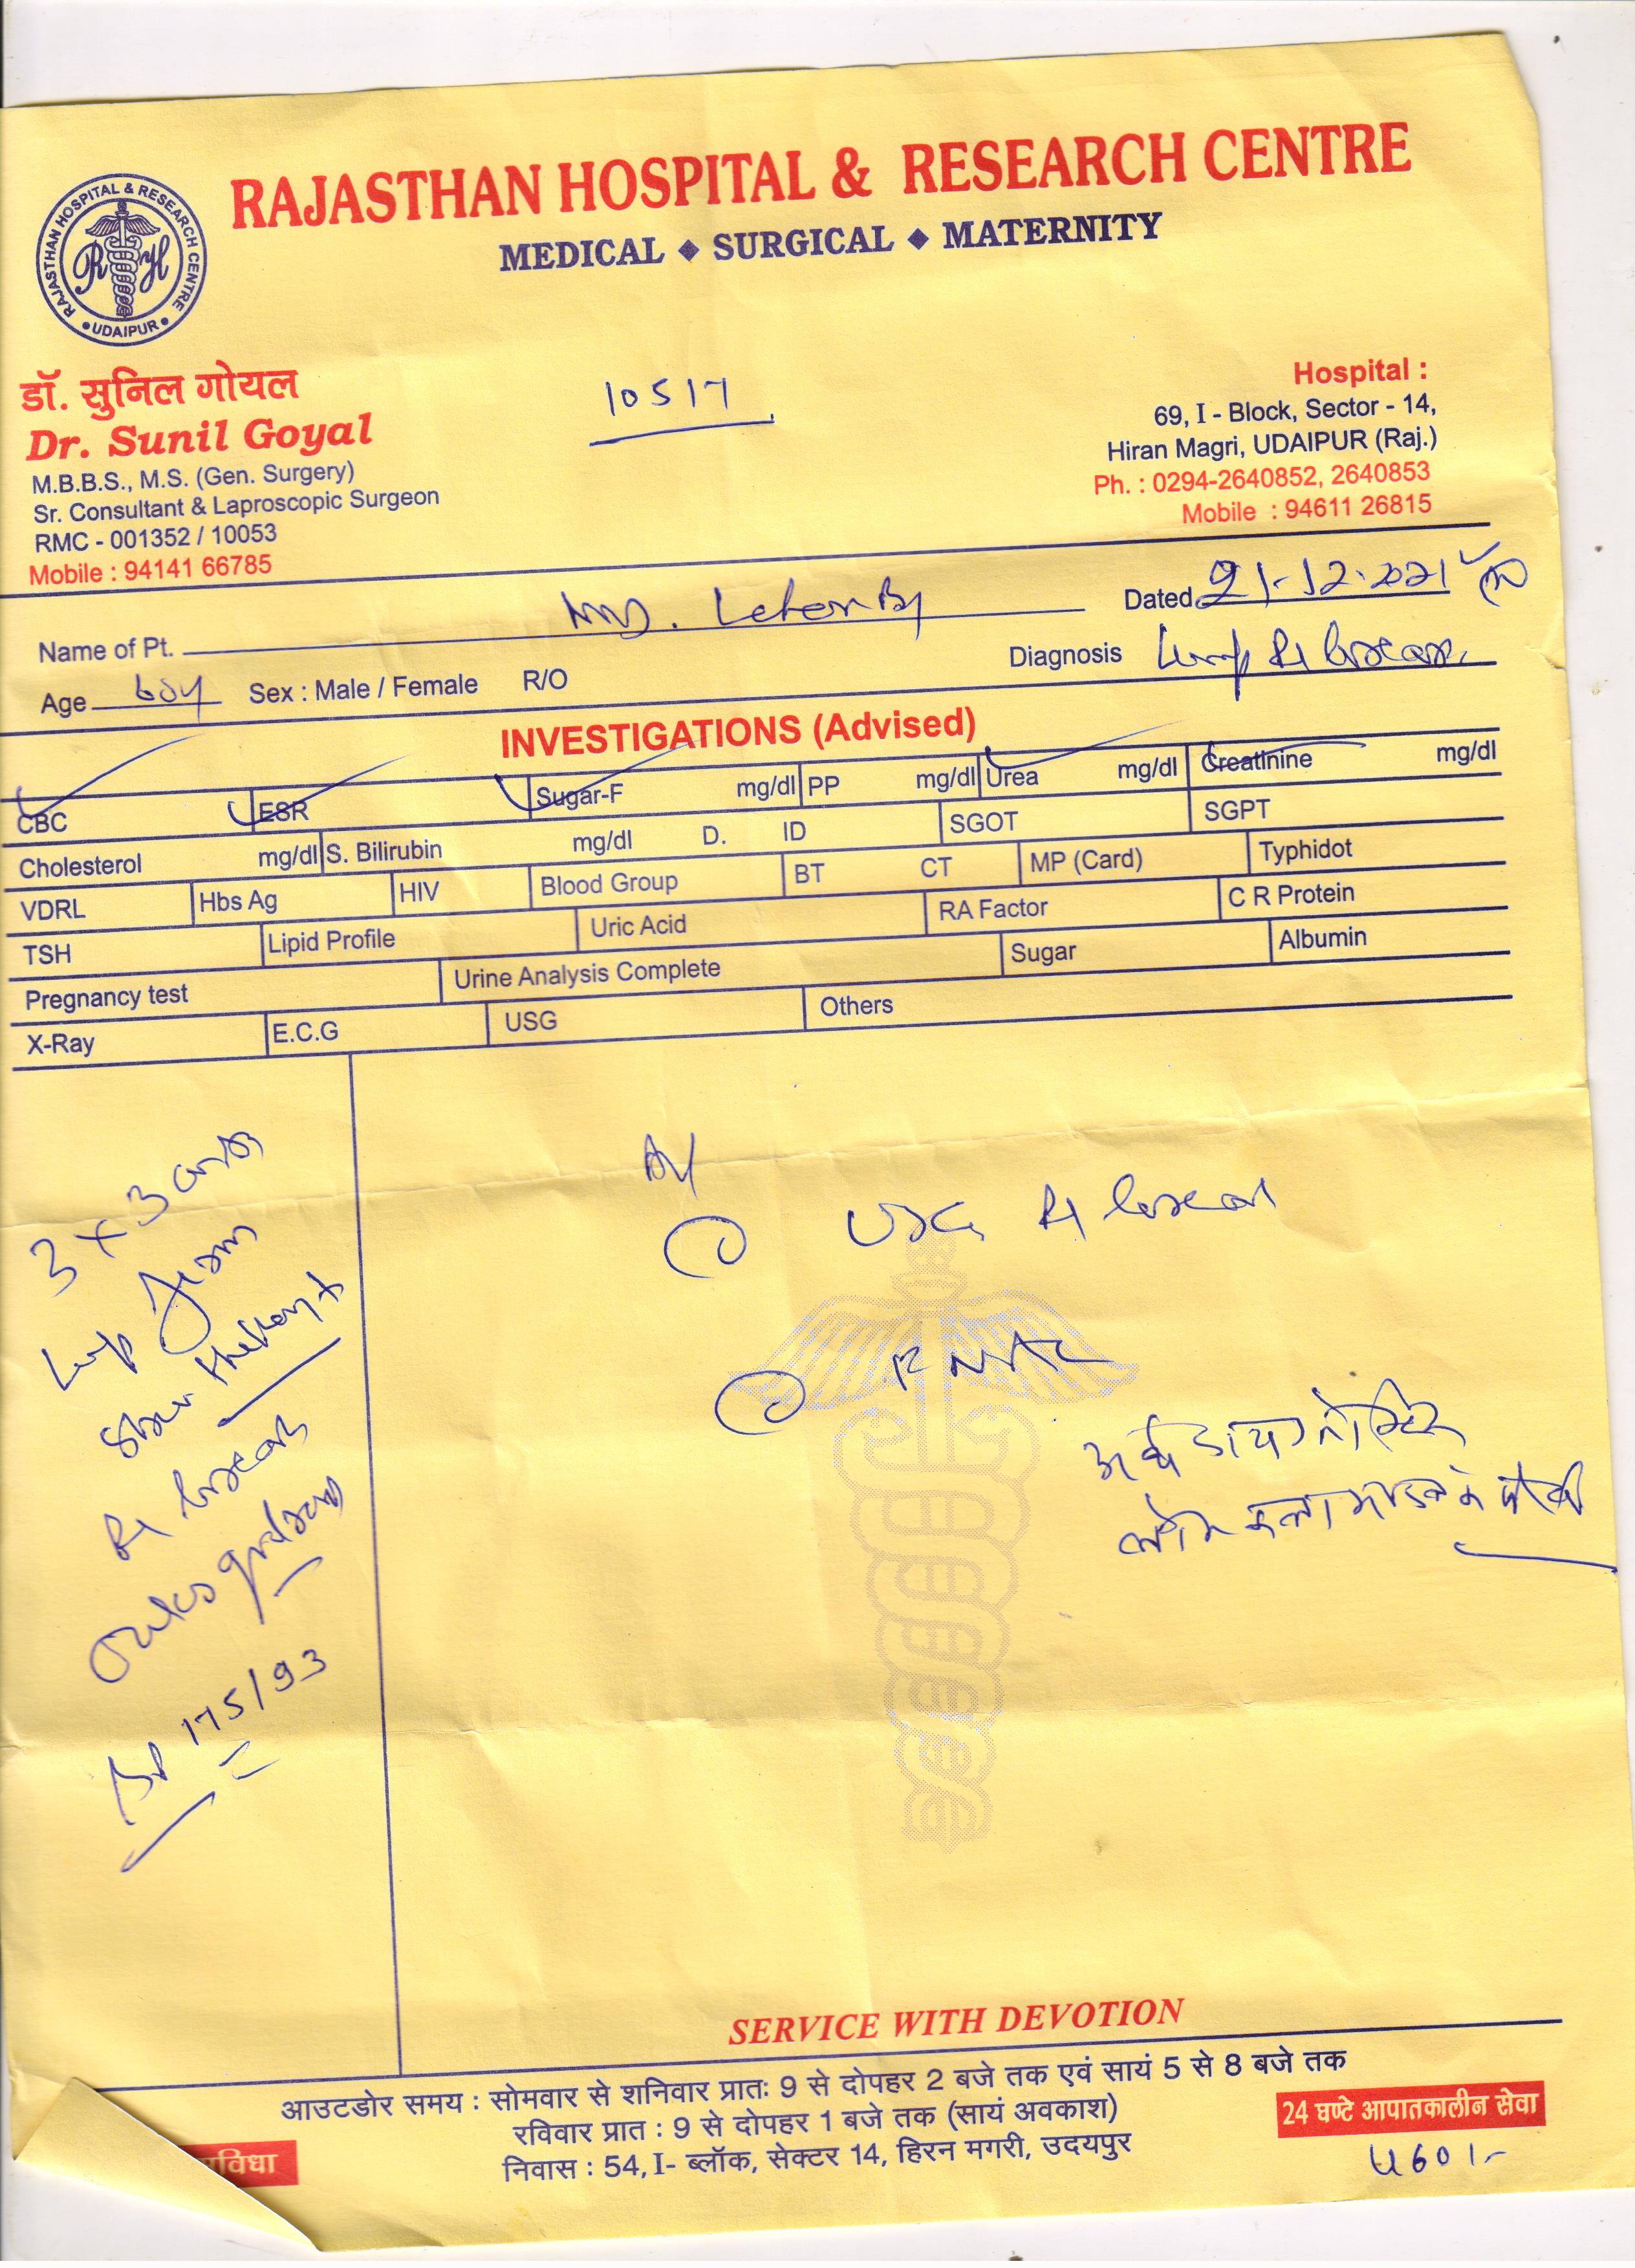 RAJASTHAN HOSPITAL & RESEARCH CENTRE
MEDICAL ◆ SURGICAL ◆ MATERNITY
RAJASTHAN HOSPITAL & RESEARCH CENTRE
RH
• UDAIPUR •
डॉ. सुनिल गोयल
Dr. Sunil Goyal
M.B.B.S., M.S. (Gen. Surgery)
Sr. Consultant & Laproscopic Surgeon
RMC - 001352 / 10053
Mobile : 94141 66785
10517
Hospital :
69, I - Block, Sector - 14,
Hiran Magri, UDAIPUR (Raj.)
Ph. : 0294-2640852, 2640853
Mobile : 94611 26815
Name of Pt.
Dated 21-12-2021
Age 60y Sex : Male / Female R/O
Diagnosis Lump Rt breast
INVESTIGATIONS (Advised)
CBC ESR Sugar-F mg/dl PP mg/dl Urea mg/dl Creatinine mg/dl
Cholesterol mg/dl S. Bilirubin mg/dl D. ID SGOT SGPT
VDRL Hbs Ag HIV Blood Group BT CT MP (Card) Typhidot
TSH Lipid Profile Uric Acid RA Factor C R Protein
Pregnancy test Urine Analysis Complete Sugar Albumin
X-Ray E.C.G USG Others
3 x 3 cms
Lump firm
Rt breast
BP 175/93
Adv
① USG Rt breast
② FNAC
अर्थ डायग्नोस्टिक
SERVICE WITH DEVOTION
आउटडोर समय : सोमवार से शनिवार प्रातः 9 से दोपहर 2 बजे तक एवं सायं 5 से 8 बजे तक
रविवार प्रात : 9 से दोपहर 1 बजे तक (सायं अवकाश)
निवास : 54, I- ब्लॉक, सेक्टर 14, हिरन मगरी, उदयपुर
24 घण्टे आपातकालीन सेवा
विधा